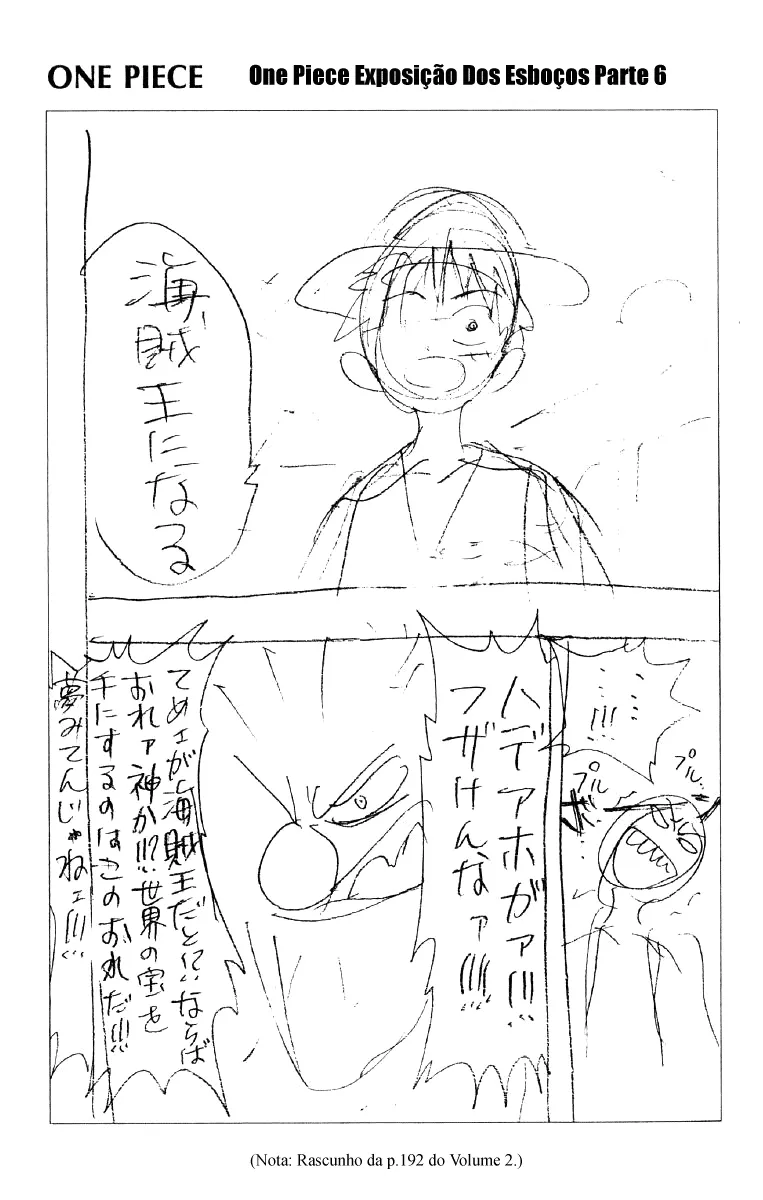 ONE PIECE
One Piece Exposição Dos Esboços Parte 6
海賊王になる
……!!!
プル…
プル…
ハデアホがァ!!!
フザけんなァ!!!!
てめェが海賊王だと!?ならば
おれァ神か!!?世界の宝を
手にするのはこのおれだ!!!
夢みてんじゃねェ!!!
(Nota: Rascunho da p.192 do Volume 2.)